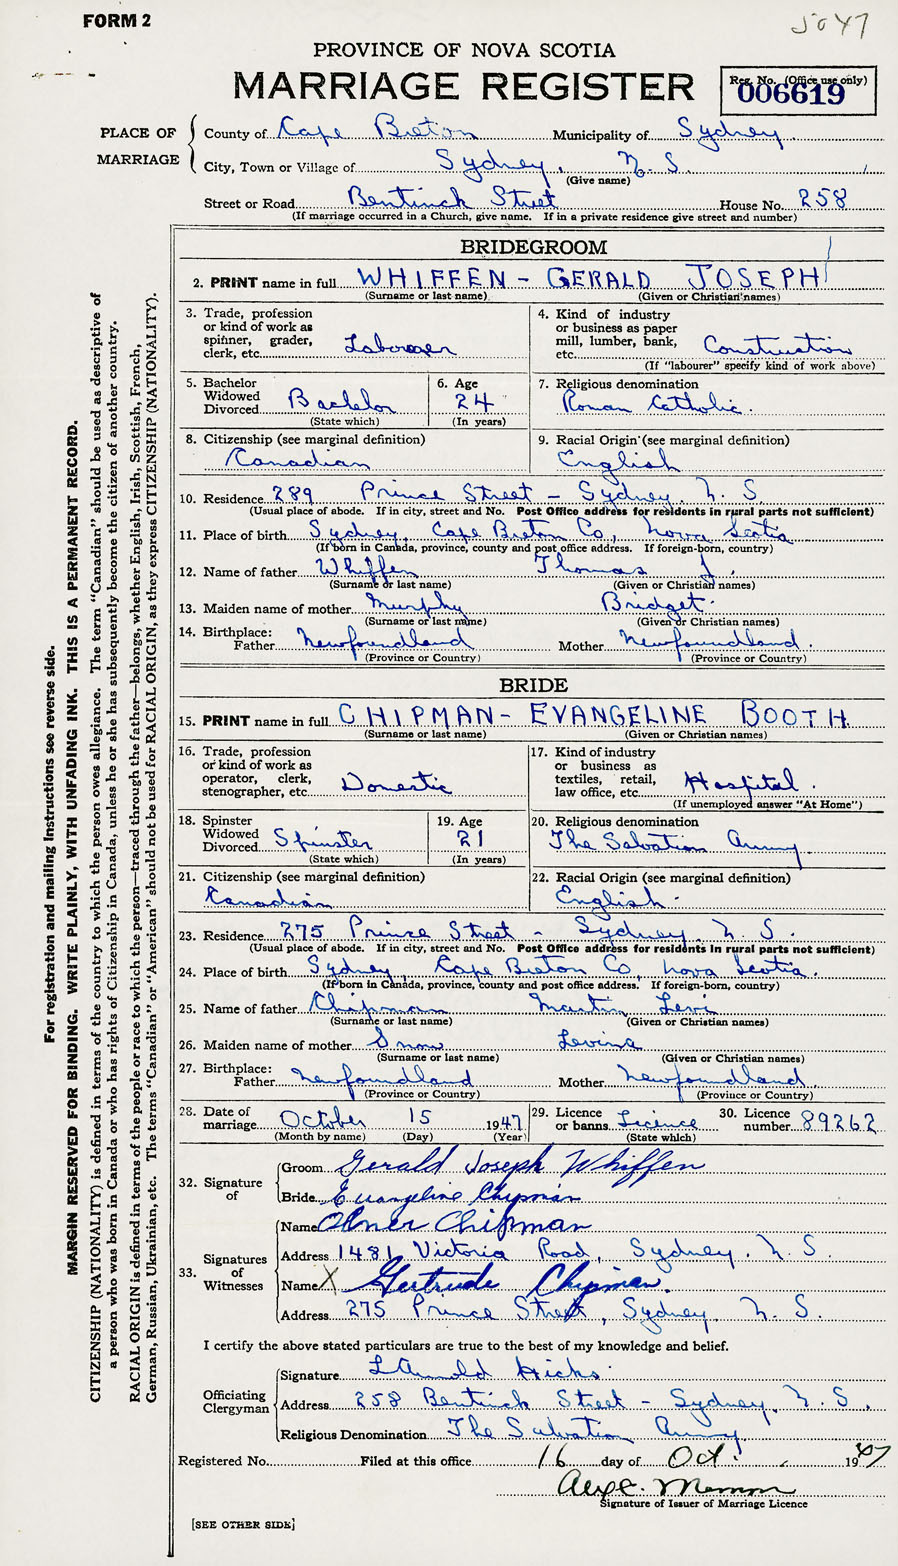 FORM 2
5047
PROVINCE OF NOVA SCOTIA
MARRIAGE REGISTER
Reg. No. (Office use only)
006619
PLACE OF MARRIAGE
County of Cape Breton Municipality of Sydney
City, Town or Village of Sydney, N. S.
(Give name)
Street or Road Bentinck Street House No. 258
(If marriage occurred in a Church, give name. If in a private residence give street and number)
BRIDEGROOM
2. PRINT name in full WHIFFEN - GERALD JOSEPH
(Surname or last name) (Given or Christian names)
3. Trade, profession or kind of work as spinner, grader, clerk, etc. Laborer
4. Kind of industry or business as paper mill, lumber, bank, etc. Construction
(If "labourer" specify kind of work above)
5. Bachelor Widowed Divorced Bachelor
(State which)
6. Age 24
(In years)
7. Religious denomination
Roman Catholic.
8. Citizenship (see marginal definition)
Canadian
9. Racial Origin (see marginal definition)
English
10. Residence 289 Prince Street - Sydney, N. S.
(Usual place of abode. If in city, street and No. Post Office address for residents in rural parts not sufficient)
11. Place of birth Sydney, Cape Breton Co, Nova Scotia
(If born in Canada, province, county and post office address. If foreign-born, country)
12. Name of father Whiffen Thomas J.
(Surname or last name) (Given or Christian names)
13. Maiden name of mother Murphy Bridget.
(Surname or last name) (Given or Christian names)
14. Birthplace:
Father Newfoundland Mother Newfoundland.
(Province or Country) (Province or Country)
BRIDE
15. PRINT name in full CHIPMAN - EVANGELINE BOOTH
(Surname or last name) (Given or Christian names)
16. Trade, profession or kind of work as operator, clerk, stenographer, etc. Domestic
17. Kind of industry or business as textiles, retail, law office, etc. Hospital.
(If unemployed answer "At Home")
18. Spinster Widowed Divorced Spinster
(State which)
19. Age 21
(In years)
20. Religious denomination
The Salvation Army.
21. Citizenship (see marginal definition)
Canadian
22. Racial Origin (see marginal definition)
English.
23. Residence 275 Prince Street - Sydney, N. S.
(Usual place of abode. If in city, street and No. Post Office address for residents in rural parts not sufficient)
24. Place of birth Sydney, Cape Breton Co, Nova Scotia.
(If born in Canada, province, county and post office address. If foreign-born, country)
25. Name of father Chipman Martin Levi
(Surname or last name) (Given or Christian names)
26. Maiden name of mother Snow Levina
(Surname or last name) (Given or Christian names)
27. Birthplace:
Father Newfoundland Mother Newfoundland.
(Province or Country) (Province or Country)
28. Date of marriage October 15 1947
(Month by name) (Day) (Year)
29. Licence or banns Licence
(State which)
30. Licence number 89262
32. Signature of
Groom Gerald Joseph Whiffen
Bride Evangeline Chipman
33. Signatures of Witnesses
Name Abner Chipman
Address 1481 Victoria Road, Sydney. N. S.
Name X Gertrude Chipman.
Address 275 Prince Street, Sydney N. S.
I certify the above stated particulars are true to the best of my knowledge and belief.
Officiating Clergyman
Signature L Arnold Hicks
Address 258 Bentinck Street - Sydney, N. S.
Religious Denomination The Salvation Army
Registered No. Filed at this office 16 day of Oct. 1947
Signature of Issuer of Marriage Licence
[SEE OTHER SIDE]
For registration and mailing instructions see reverse side.
MARGIN RESERVED FOR BINDING. WRITE PLAINLY, WITH UNFADING INK. THIS IS A PERMANENT RECORD.
CITIZENSHIP (NATIONALITY) is defined in terms of the country to which the person owes allegiance. The term "Canadian" should be used as descriptive of
a person who was born in Canada or who has rights of Citizenship in Canada, unless he or she has subsequently become the citizen of another country.
RACIAL ORIGIN is defined in terms of the people or race to which the person—traced through the father—belongs, whether English, Irish, Scottish, French,
German, Russian, Ukrainian, etc. The terms "Canadian" or "American" should not be used for RACIAL ORIGIN, as they express CITIZENSHIP (NATIONALITY).